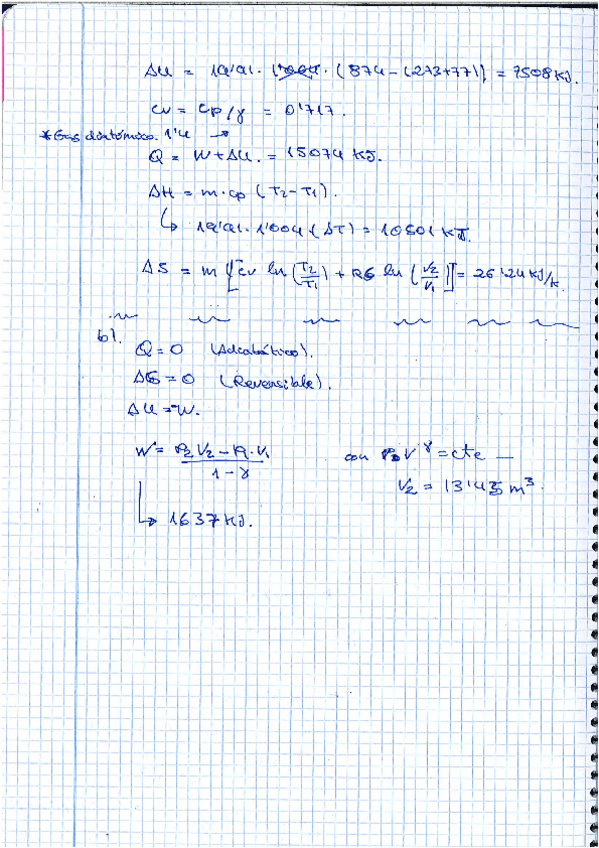 ΔU = 19'91 · (874 - (273+77)) = 7508 KJ.
cv = cp/γ = 0'717.
*Gas diatómico. 1'4 →
Q = W + ΔU. = 15074 KJ.
ΔH = m·cp (T2-T1).
↳ 19'91 · 1'004 · (ΔT) = 10501 KJ.
ΔS = m [cv ln (T2/T1) + RG ln (V2/V1)] = 26'24 KJ/K.
b).
Q = 0 (Adiabático).
ΔS = 0 (Reversible).
ΔU = -W.
W = P2 V2 - P1 · V1 / 1 - γ con P V^γ = cte —
V2 = 13'43 m³.
↳ 1637 KJ.